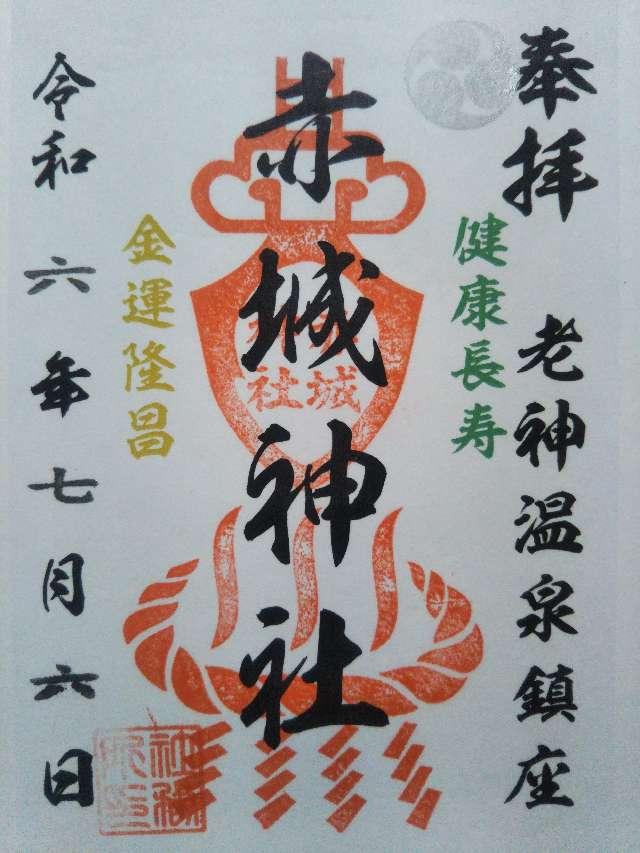 奉拝
老神温泉鎮座
健康長寿
赤城神社
金運隆昌
令和六年七月六日